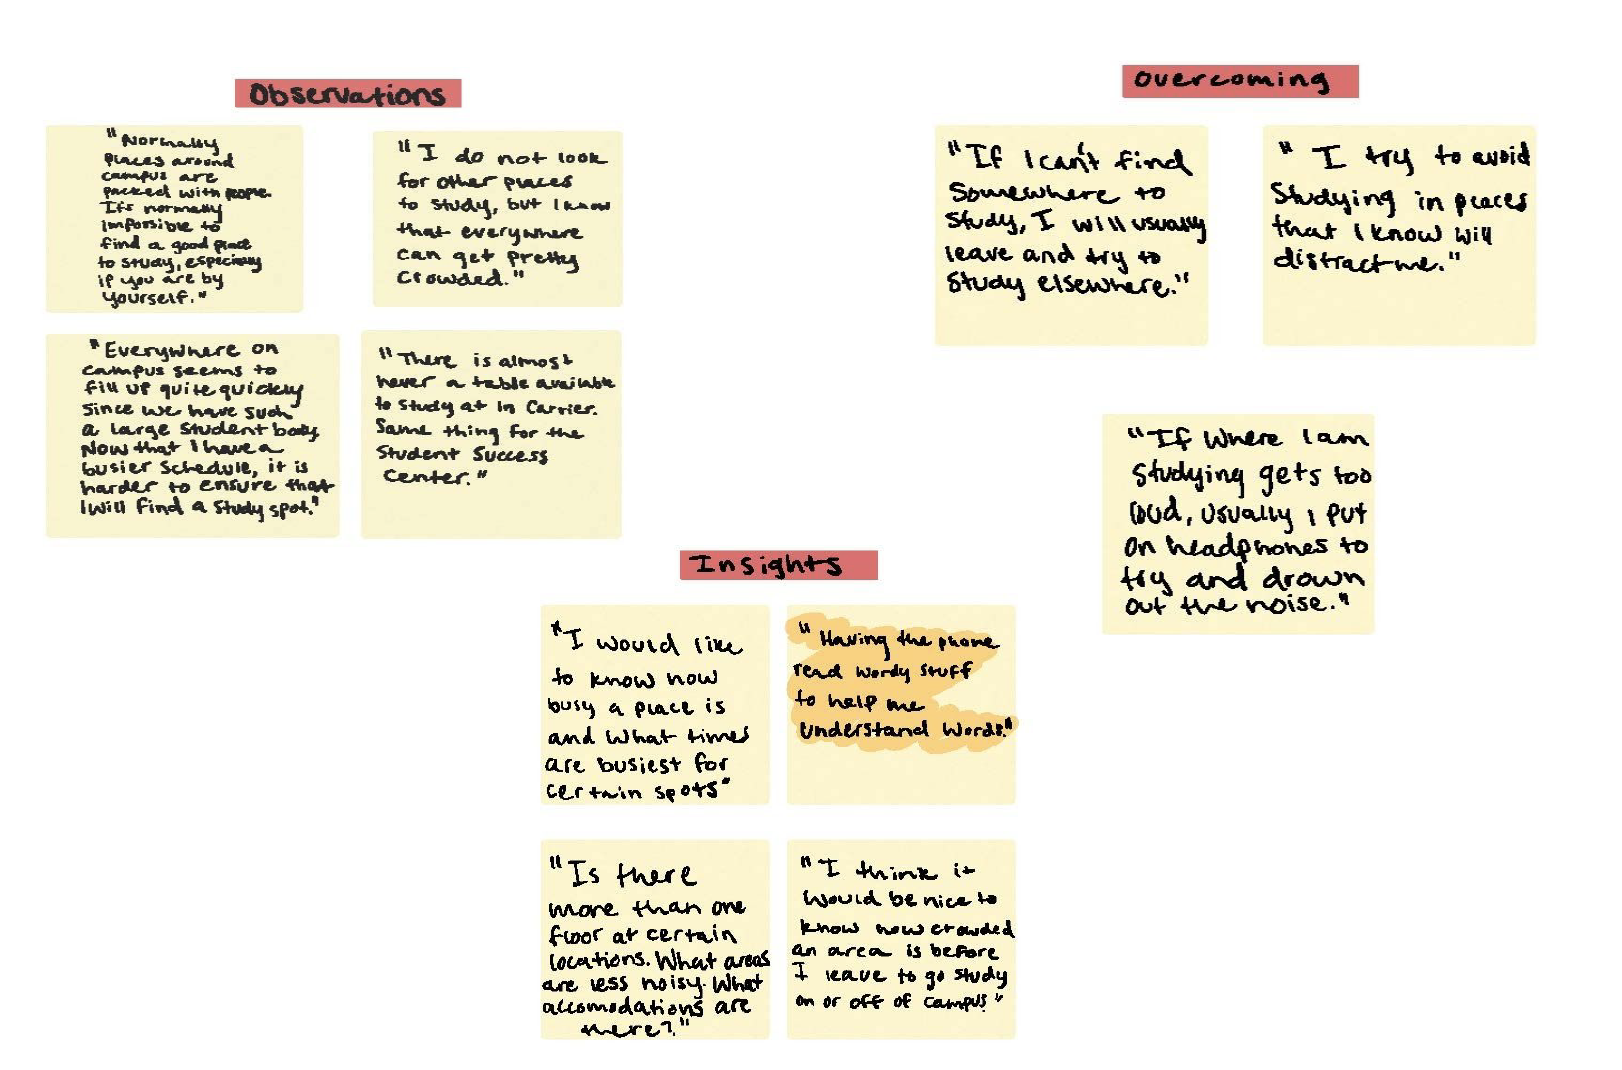 Observations
"Normally
places around
campus are
packed with people.
It's normally
impossible to
find a good place
to study, especially
if you are by
yourself."
"I do not look
for other places
to study, but I know
that everywhere
can get pretty
crowded."
"Everywhere on
campus seems to
fill up quite quickly
since we have such
a large student body.
Now that I have a
busier schedule, it is
harder to ensure that
I will find a study spot."
"There is almost
never a table available
to study at in Carrier.
Same thing for the
Student Success
Center."
Overcoming
"If I can't find
somewhere to
study, I will usually
leave and try to
study elsewhere."
"I try to avoid
studying in places
that I know will
distract me."
"If where I am
studying gets too
loud, usually I put
on headphones to
try and drown
out the noise."
Insights
"I would like
to know how
busy a place is
and what times
are busiest for
certain spots"
"Having the phone
read wordy stuff
to help me
understand words."
"Is there
more than one
floor at certain
locations. What areas
are less noisy. What
accomodations are
there?."
"I think it
would be nice to
know how crowded
an area is before
I leave to go study
on or off of campus."